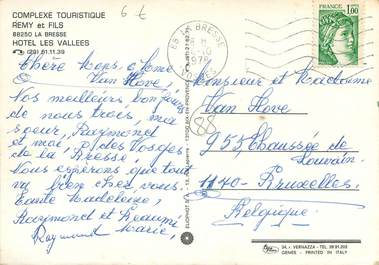 COMPLEXE TOURISTIQUE
REMY et FILS
88250 LA BRESSE
HOTEL LES VALLEES
(29) 61.11.39
6 €
Chère Mops, Oome
Van Hove,
Nos meilleurs bonjours
de nous trois, ma
soeur, Raymond
et moi, des Vosges
de la Bresse.
Nous espérons que tout
va bien chez vous.
Tante Madeleine,
Raymond et
Raymonde Marie,
88 LA BRESSE
1978
VOSGES
FRANCE 1,00
Monsieur et Madame
Van Hove
88
953 Chaussée de
Louvain
1140 - Bruxelles
Belgique
34, r. VERNAZZA - TEL.
GENES - PRINTED IN ITALY